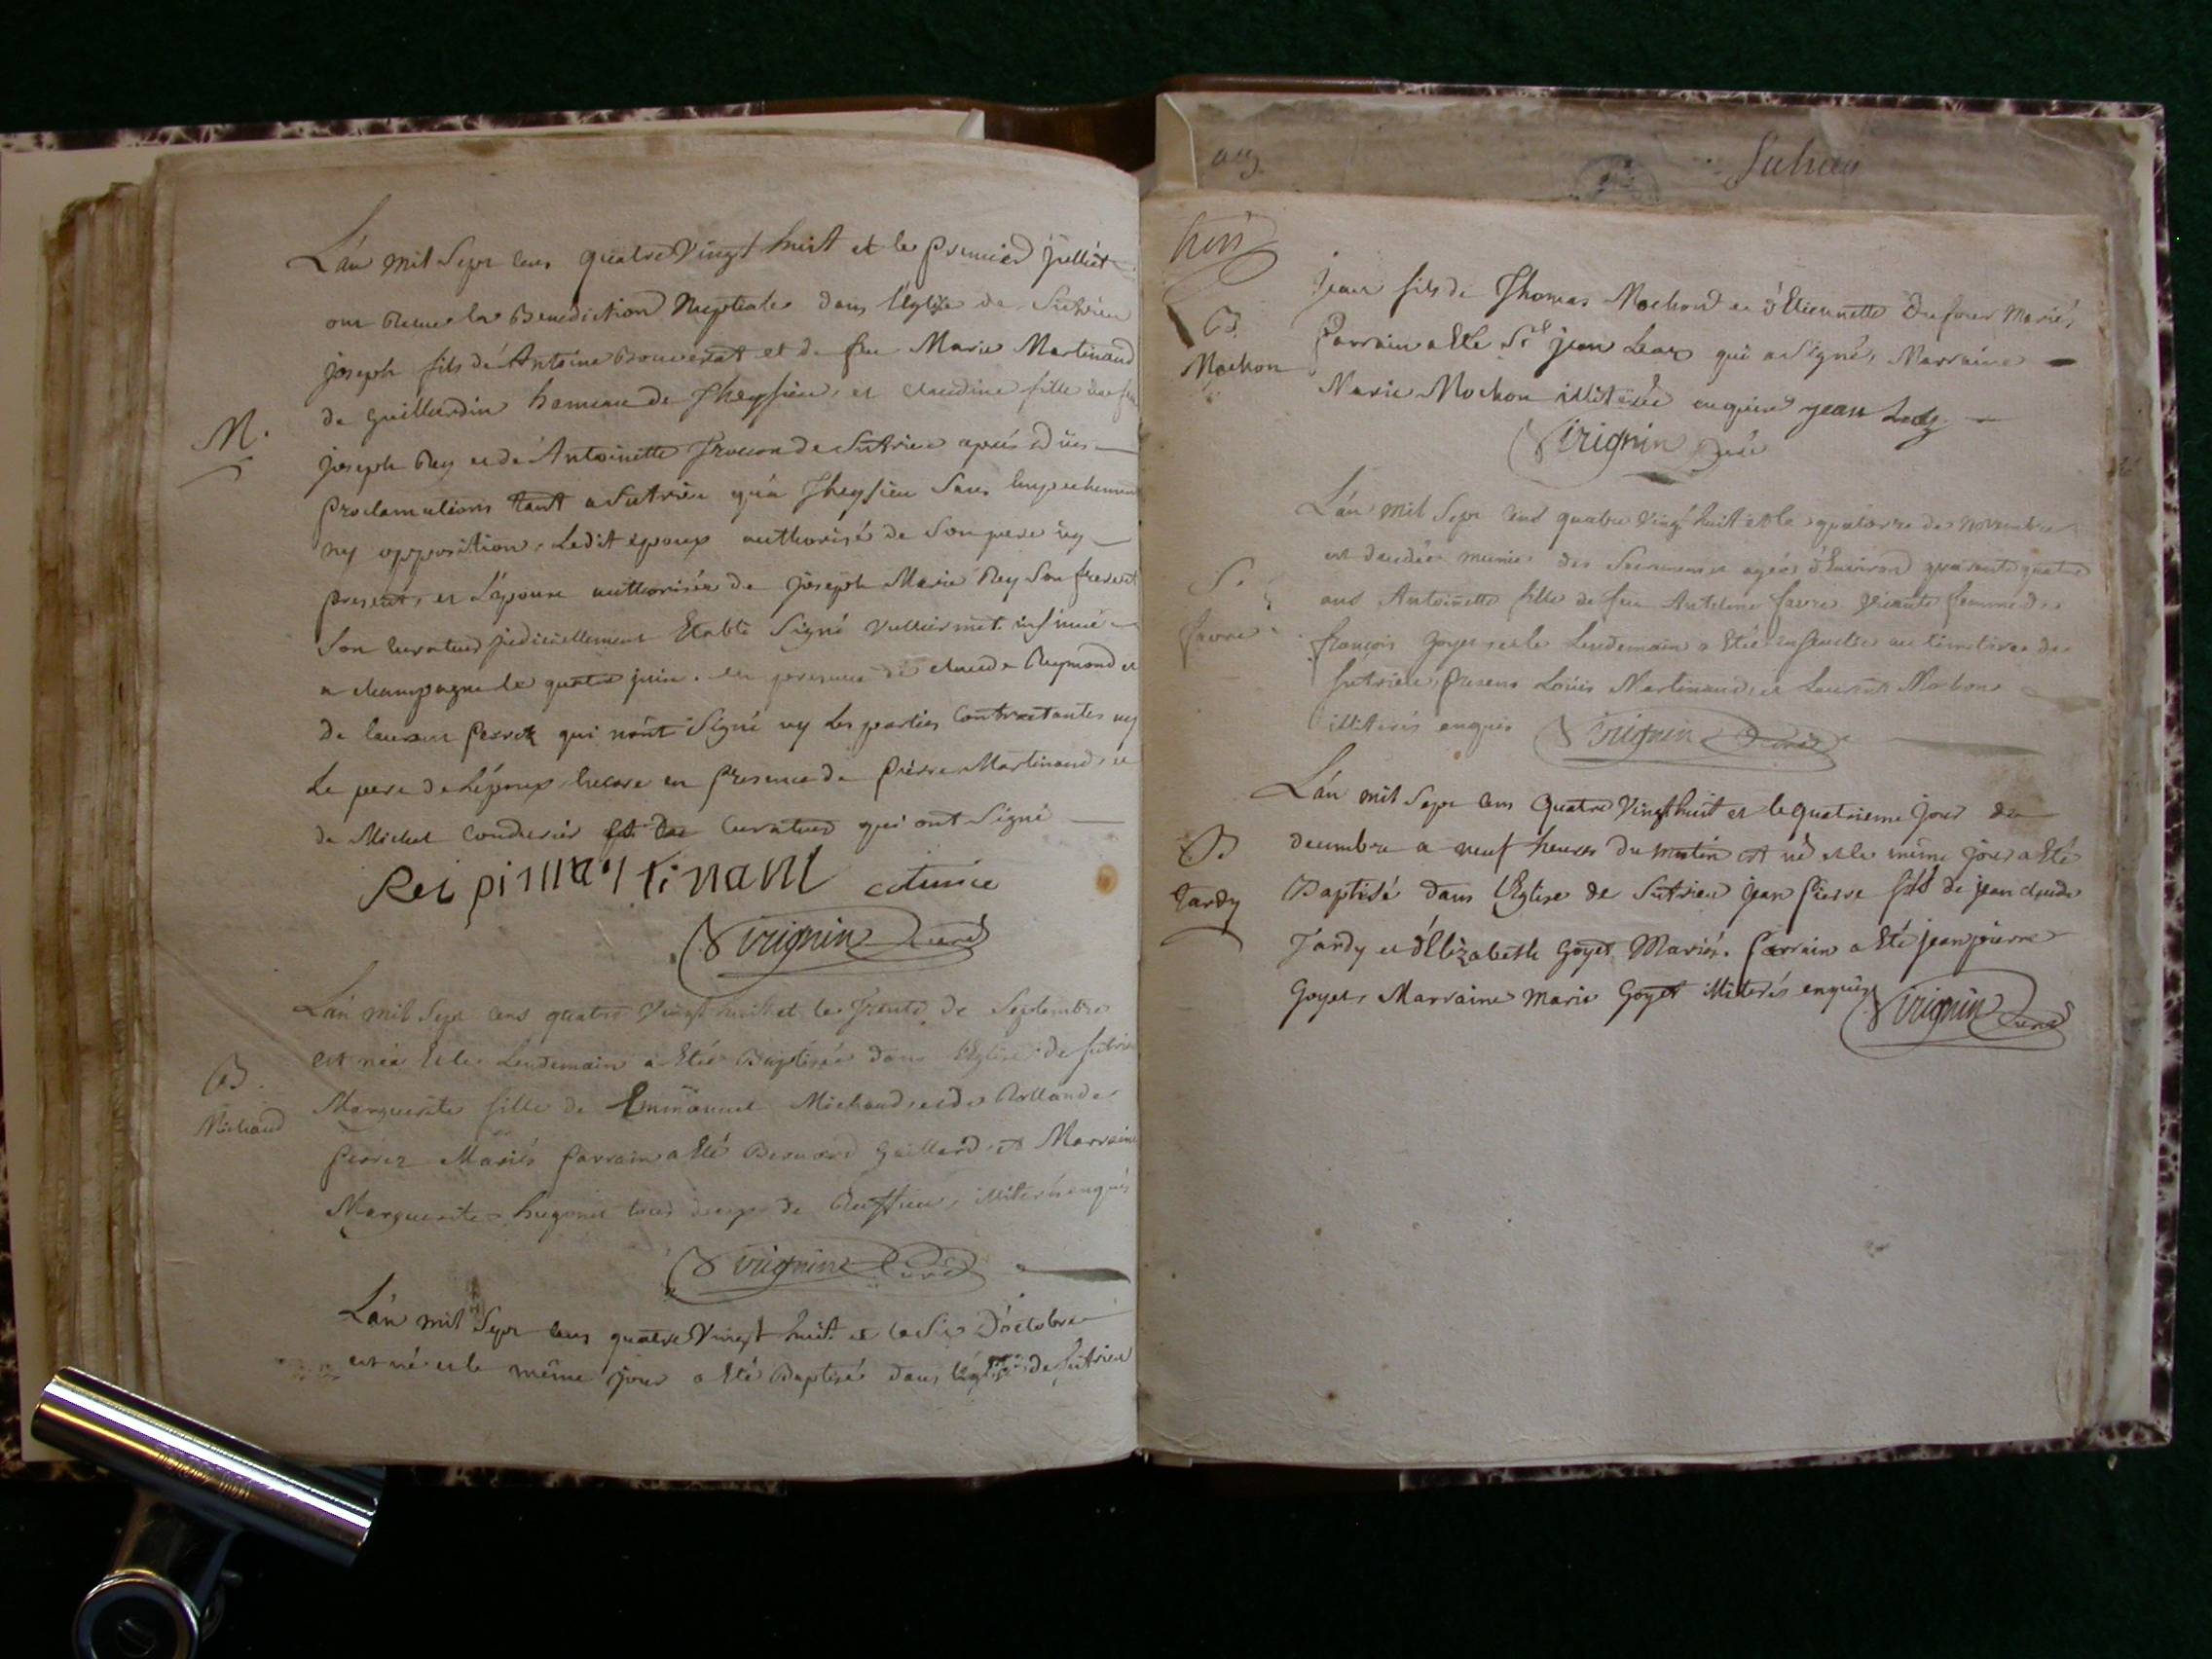 L'an mil Sept cens quatre Vingt huit et le premier juillet
ont Recue la Benediction Nuptiale dans l'Eglise de Sutrieu
joseph fils d'Antoine Bouverat et de feu Marie Martinand
M.
de Guillardin hameau de Theysieu, et claudine fille de feu
joseph Rey et d'Antoinette de Sutrieu après dües
proclamations tant a Sutrieu qu'a Theysieu Sans Empechement
ny opposition, Ledit époux authorisé de Son pere icy
present, et L'épouse authorisée de joseph Marie Rey Son frere et
Son curateur judiciellement Etabli Signé Vulliermet insinué
a champagne le quatre juin. en presence de claude Reymond et
de laurent perret qui n'ont Signé ny Les parties Contractantes ny
Le pere de L'époux, Encore en presence de pierre Martinand, et
de Michel Conderier et du Curateur qui ont Signé
Rei pimartinant
Virignin Curé
L'an mil Sept cens quatre Vingt huit et le Trente de Septembre
est née et le Lendemain a Eté Baptisée dans l'Eglise de Sutrieu
B.
Michaud
Marguerite fille de Emmanuel Michaud, et de Rollande
perret Mariés parrain a Eté Bernard Gaillard, et Marraine
Marguerite hugonet tous deux de Ruffieu, illiterés enquis
Virignin Curé
L'an mil Sept cens quatre Vingt huit et le Six D'octobre
est né et le même jour a Eté Baptisé dans l'église de Sutrieu
Sutrieu
B.
Mochon
jean fils de Thomas Mochon et d'Etiennette Dufour Mariés,
parrain a Eté Sr jean Leaz qui a Signé, Marraine
Marie Mochon illiterée enquise jean Leaz
Virignin Curé
L'an mil Sept cens quatre Vingt huit et le quatorze de Novembre
est decedée munie des Sacremens agée d'Environ quarante quatre
S.
favre
ans Antoinette fille de feu Antelme favre Vivante femme de
françois Goyet, et le Lendemain a Eté ensevelie au Cimetiere de
Sutrieu, presens Louis Martinand, et Laurent Mochon
illiterés enquis Virignin Curé
L'an mil Sept cens Quatre Vingt huit et le quatrieme jour de
B.
Tardy
decembre a neuf heures du matin est né et le même jour a Eté
Baptisé dans l'Eglise de Sutrieu jean pierre fils de jean claude
Tardy et d'Elizabeth Goyet Mariés. parrain a Eté jean pierre
Goyet, Marraine Marie Goyet illiterés enquis Virignin Curé